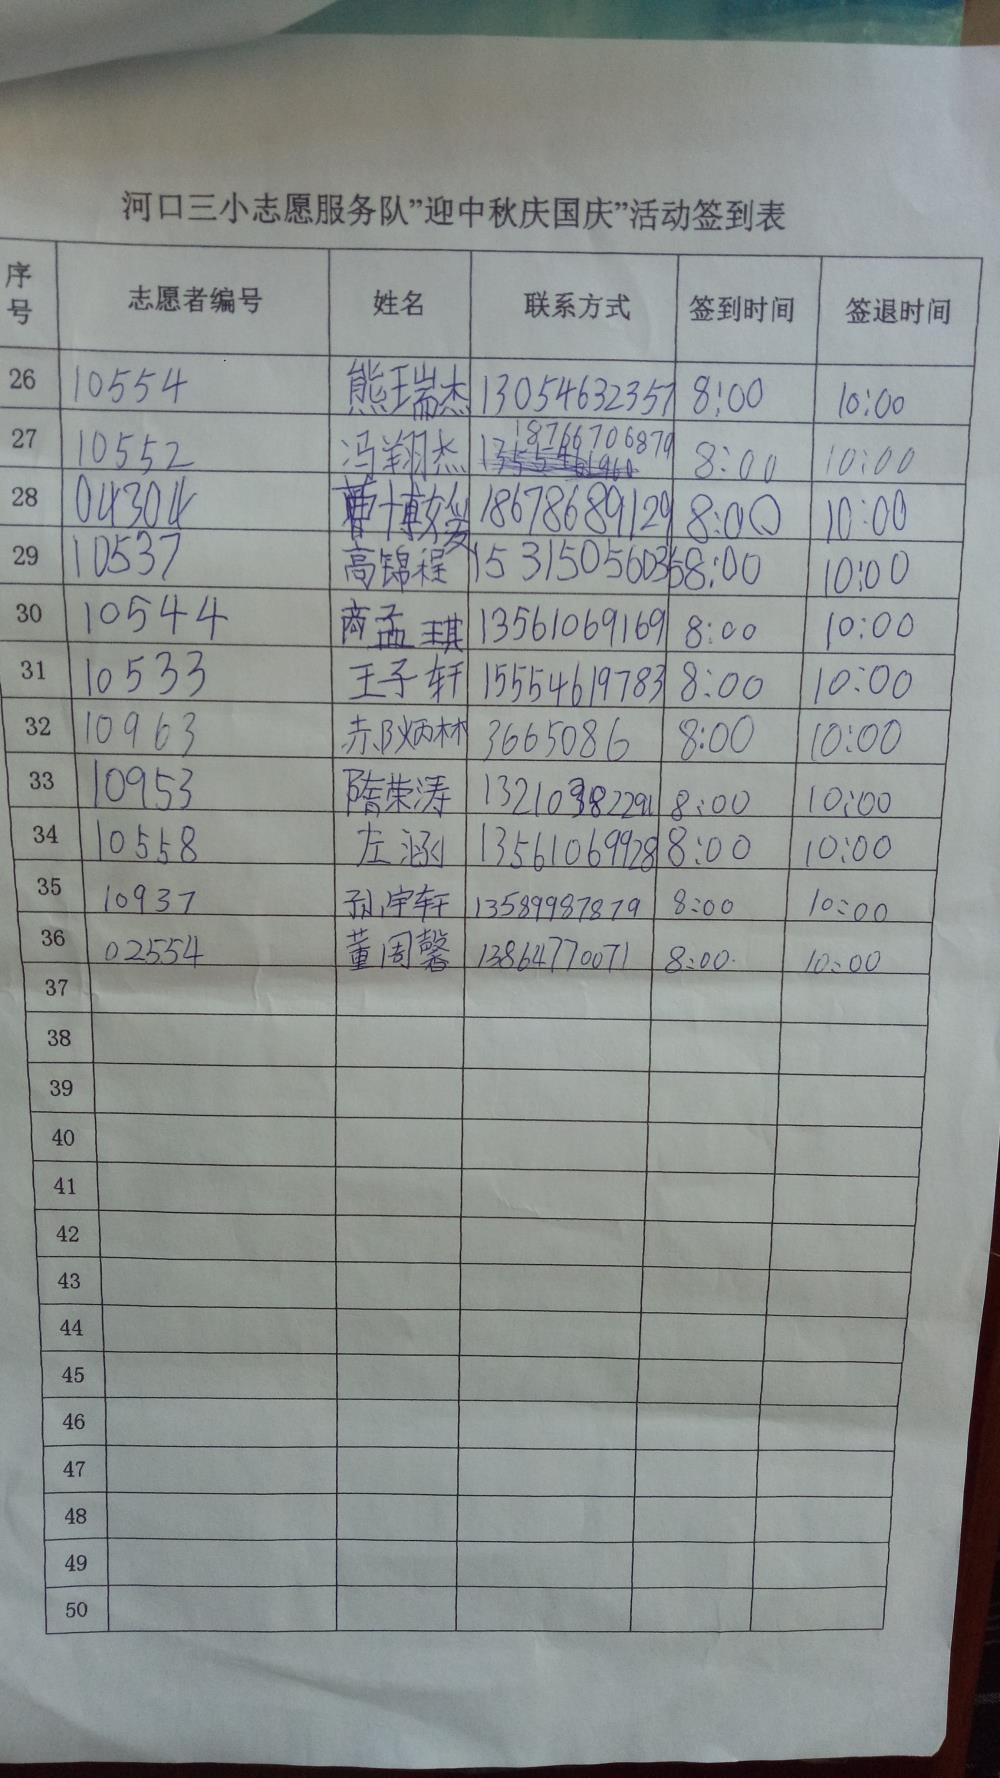 河口三小志愿服务队"迎中秋庆国庆"活动签到表
序号 志愿者编号 姓名 联系方式 签到时间 签退时间
26 10554 熊瑞杰 13054632357 8:00 10:00
27 10552 冯翔杰 18766706879 8:00 10:00
28 04304 曹博媛 18678689129 8:00 10:00
29 10537 高锦程 15315056035 8:00 10:00
30 10544 商孟琪 13561069169 8:00 10:00
31 10533 王子轩 15554619783 8:00 10:00
32 10963 炳林 3665086 8:00 10:00
33 10953 隋荣涛 13210382291 8:00 10:00
34 10558 左涵 13561069928 8:00 10:00
35 10937 孙宇轩 13589987879 8:00 10:00
36 02554 董周馨 13864770071 8:00 10:00
37
38
39
40
41
42
43
44
45
46
47
48
49
50